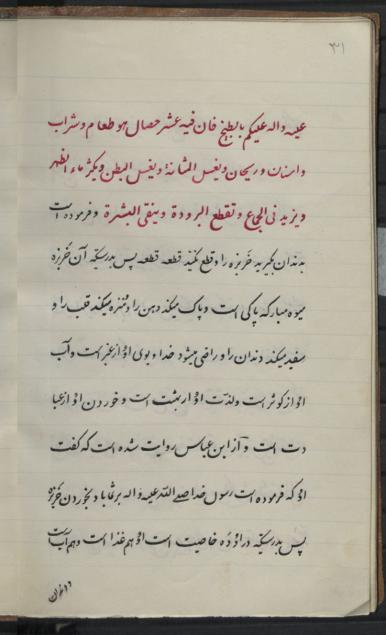 ۳۱
علیه واله علیکم بالبطیخ فان فیه عشر خصال هو طعام و شراب
و اسنان و ریحان و یغسل المثانة و یغسل البطن و یکثر ماء الظهر
و یزید فی الجماع و تقطع البرودة و ینقی البشرة و فرموده است
بدندان بگیرید خربزه را و قطع نکنید قطعه قطعه پس بدرستیکه آن خربزه
میوه مبارکه پاکی است و پاک میکند دهن را و منزه میکند قلب را و
سفید میکند دندان را و راضی میشود خدا و بوی او از عنبر است و آب
او از کوثر است ولذت او از بهشت است و خوردن او از عبا
دت است و از ابن عباس روایت شده است که گفت
او که فرموده است رسول خدا صلی الله علیه واله بر شما باد بخوردن خربزه
پس بدرستیکه در او ده خاصیت است او هم غذا است و هم آب است